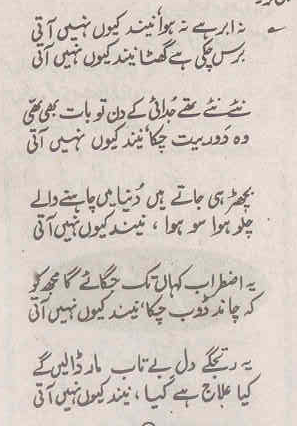 نہ ابر ہے نہ ہوا، نیند کیوں نہیں آتی
برس چکی ہے گھٹا نیند کیوں نہیں آتی
نئے نئے تھے جدائی کے دن تو بات بھی تھی
وہ دَور بیت چکا، نیند کیوں نہیں آتی
بچھڑ ہی جاتے ہیں دُنیا میں چاہنے والے
چلو ہوا سو ہوا، نیند کیوں نہیں آتی
یہ اضطراب کہاں تک جگائے گا مجھ کو
کہ چاند ڈوب چکا، نیند کیوں نہیں آتی
یہ رتجگے دلِ بے تاب مار ڈالیں گے
کیا علاج ہے کیا، نیند کیوں نہیں آتی